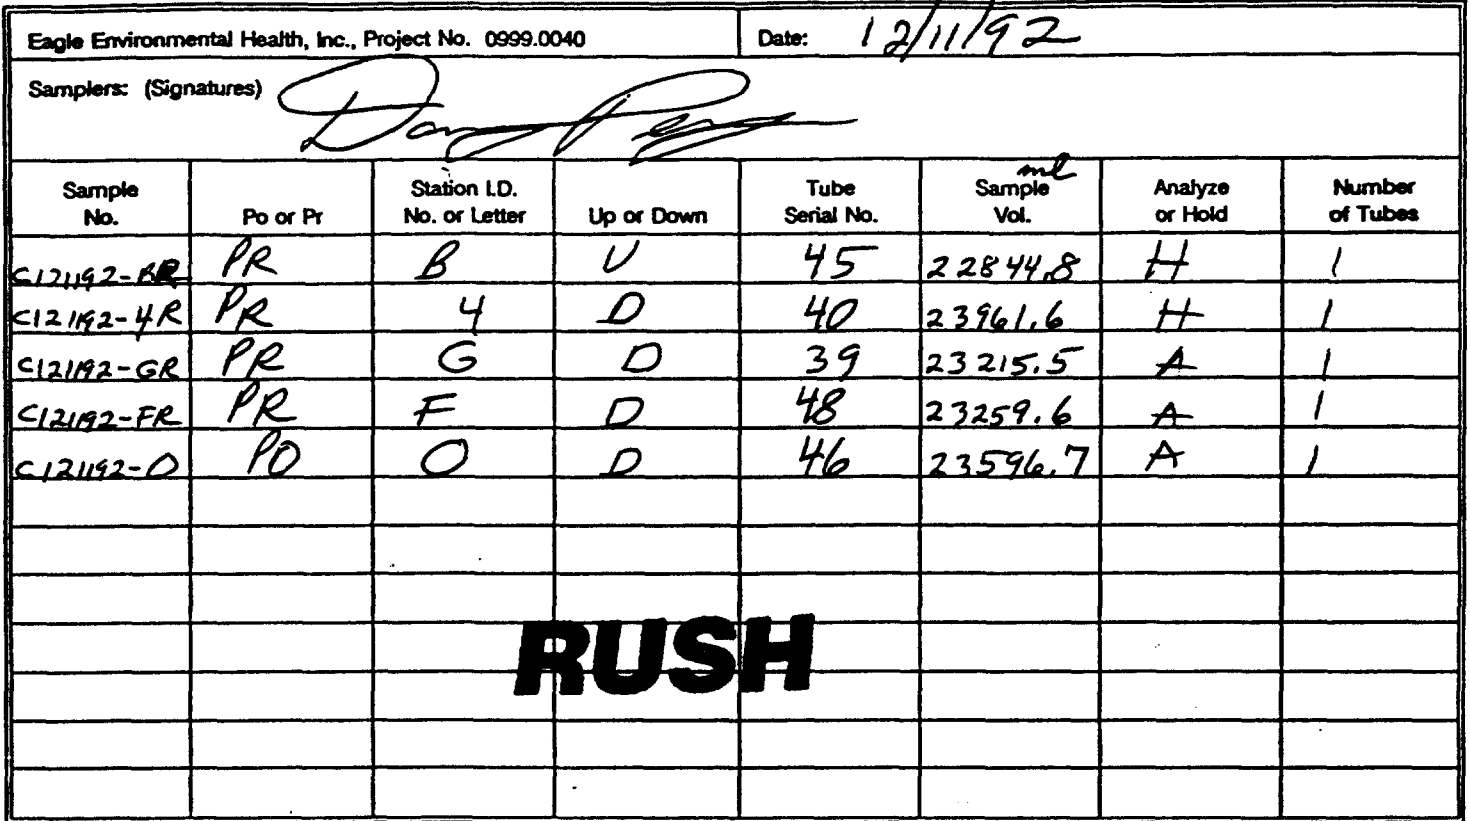 Eagle Environmental Health, Inc., Project No. 0999.0040 Date: 12/11/92
Samplers: (Signatures)
Sample No. Po or Pr Station I.D. No. or Letter Up or Down Tube Serial No. ml Sample Vol. Analyze or Hold Number of Tubes
C121192-BR PR B U 45 22844.8 H 1
C121192-4R PR 4 D 40 23961.6 H 1
C121192-GR PR G D 39 23215.5 A 1
C121192-FR PR F D 48 23259.6 A 1
C121192-O PO O D 46 23596.7 A 1
RUSH